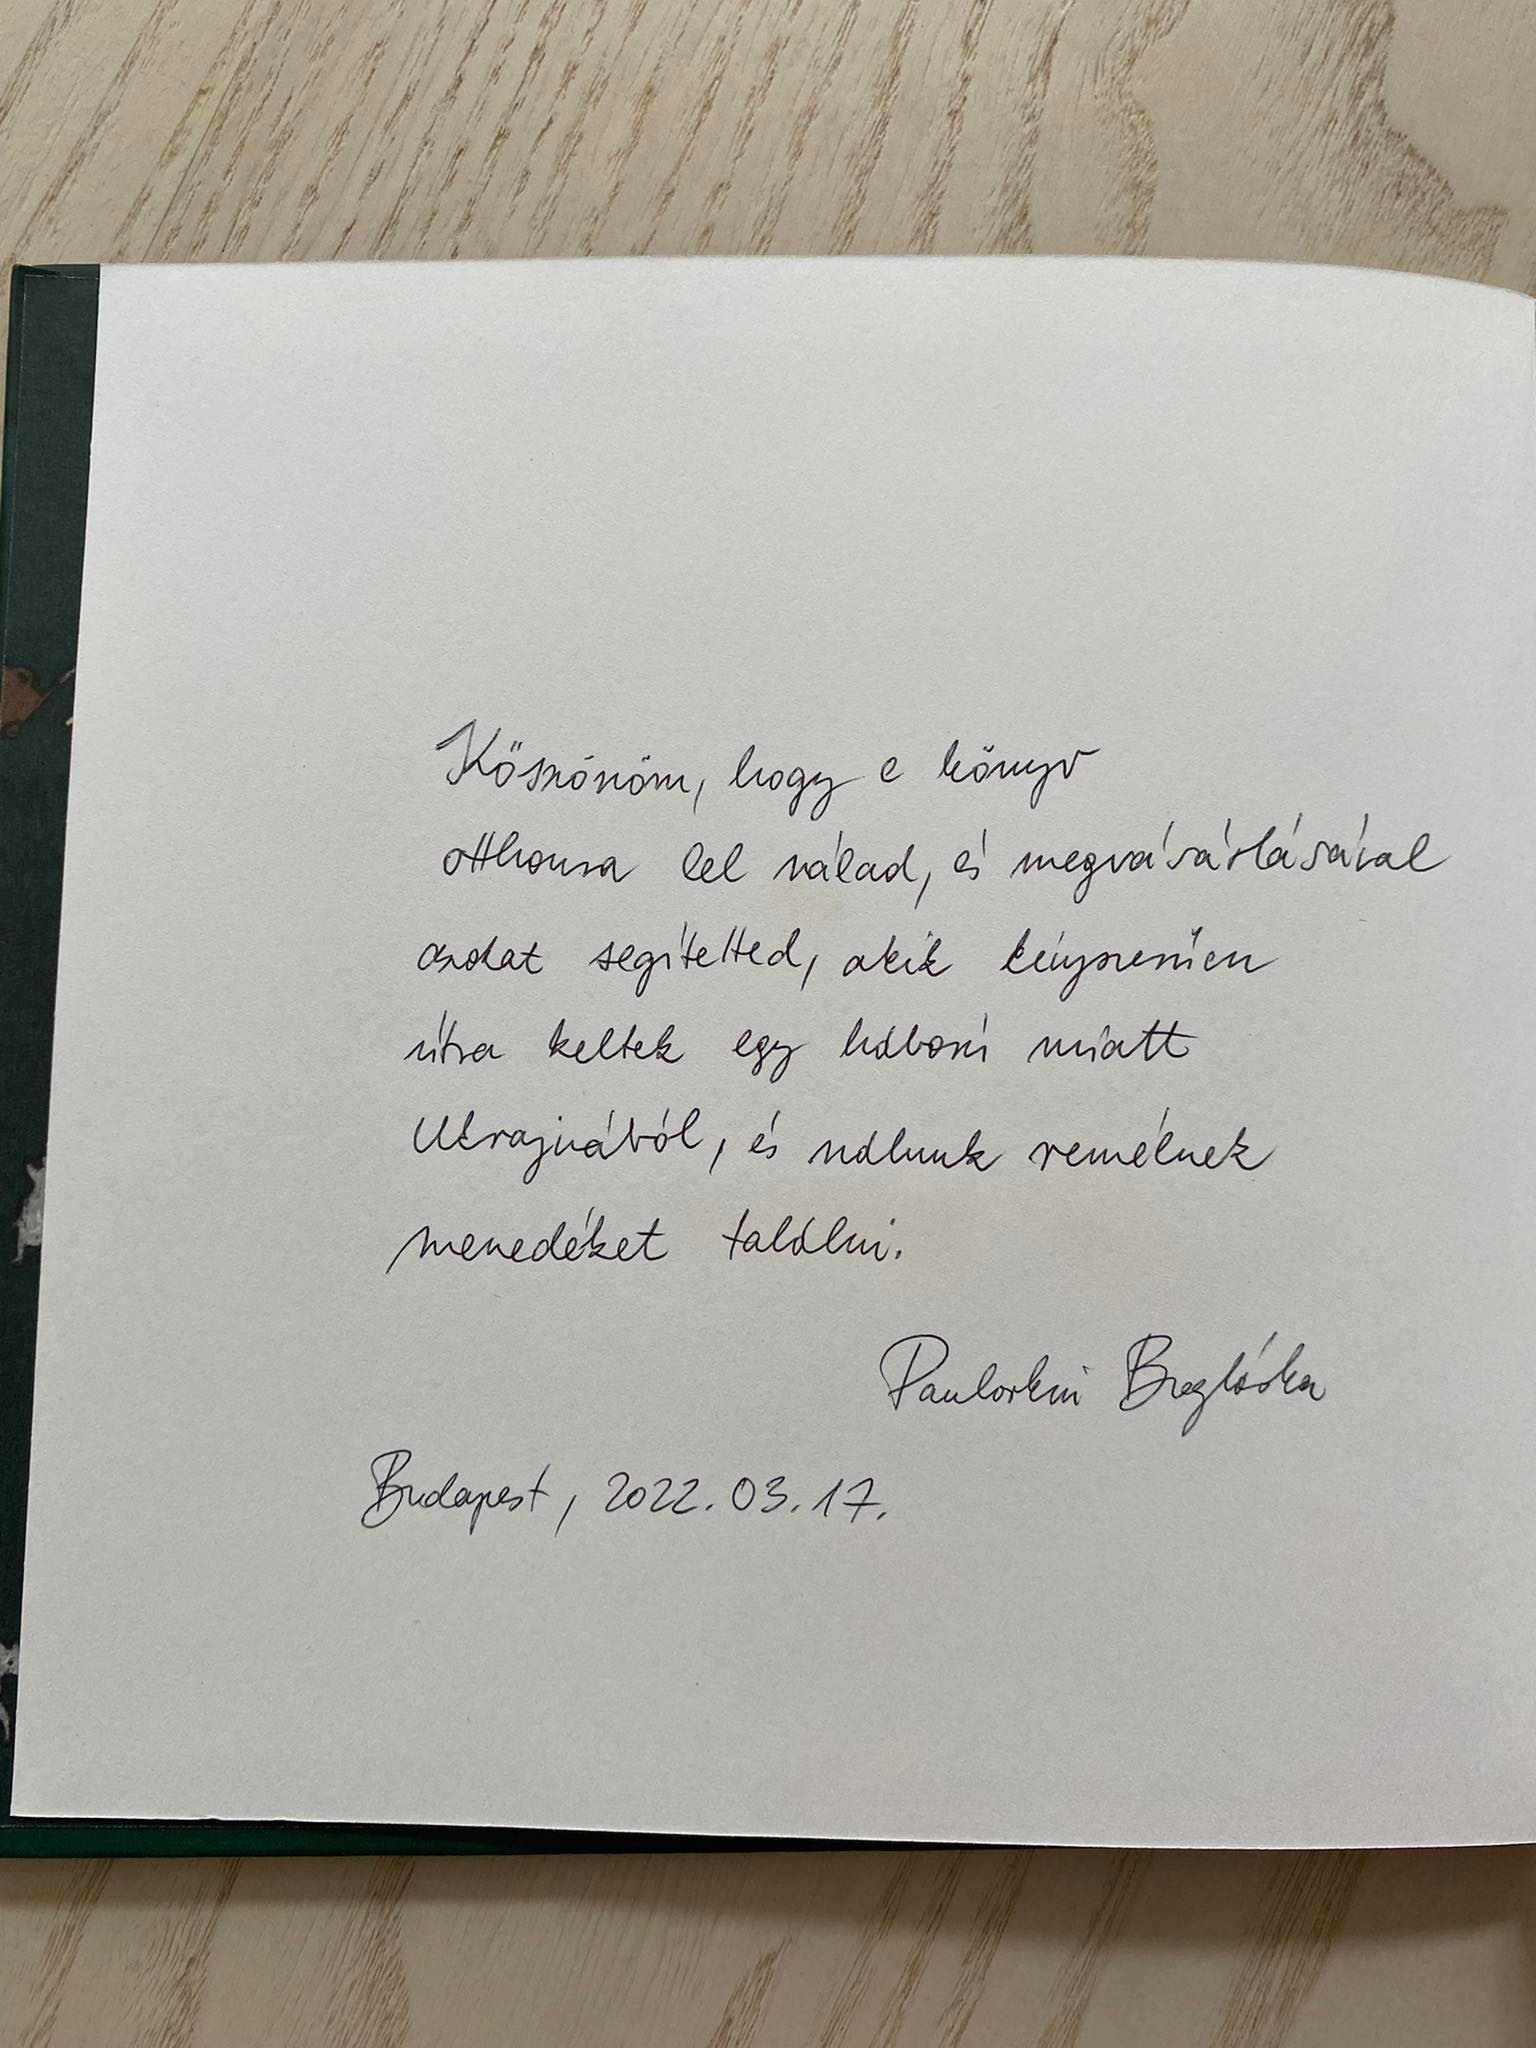 Köszönöm, hogy e könyv
otthonra lel nálad, és megvásárlásával
azokat segítetted, akik kényszerűen
útra keltek egy háború miatt
Ukrajnából, és nálunk remélnek
menedéket találni.
Boglárka
Budapest, 2022.03.17.